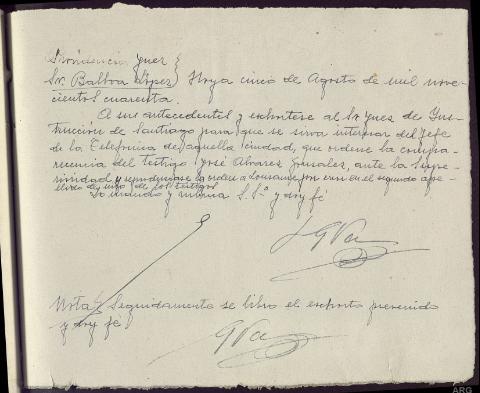 Providencia Juez
Sr. Balboa López } Noya cinco de Agosto de mil nove-
cientos cuarenta.
A sus antecedentes y exhórtese al Sr Juez de Ins-
trucción de Santiago para que se sirva interesar del Jefe
de la Telefónica de aquella ciudad, que ordene la compa-
recencia del testigo José Alvarez Gonsales, ante la
y la orden a Lousame por error en el segundo ape-
llido de uno de los testigos
Lo mandó y rubrica S. Sª y doy fé
Nota/ Seguidamente se libró el exhorto prevenido
y doy fé
ARG